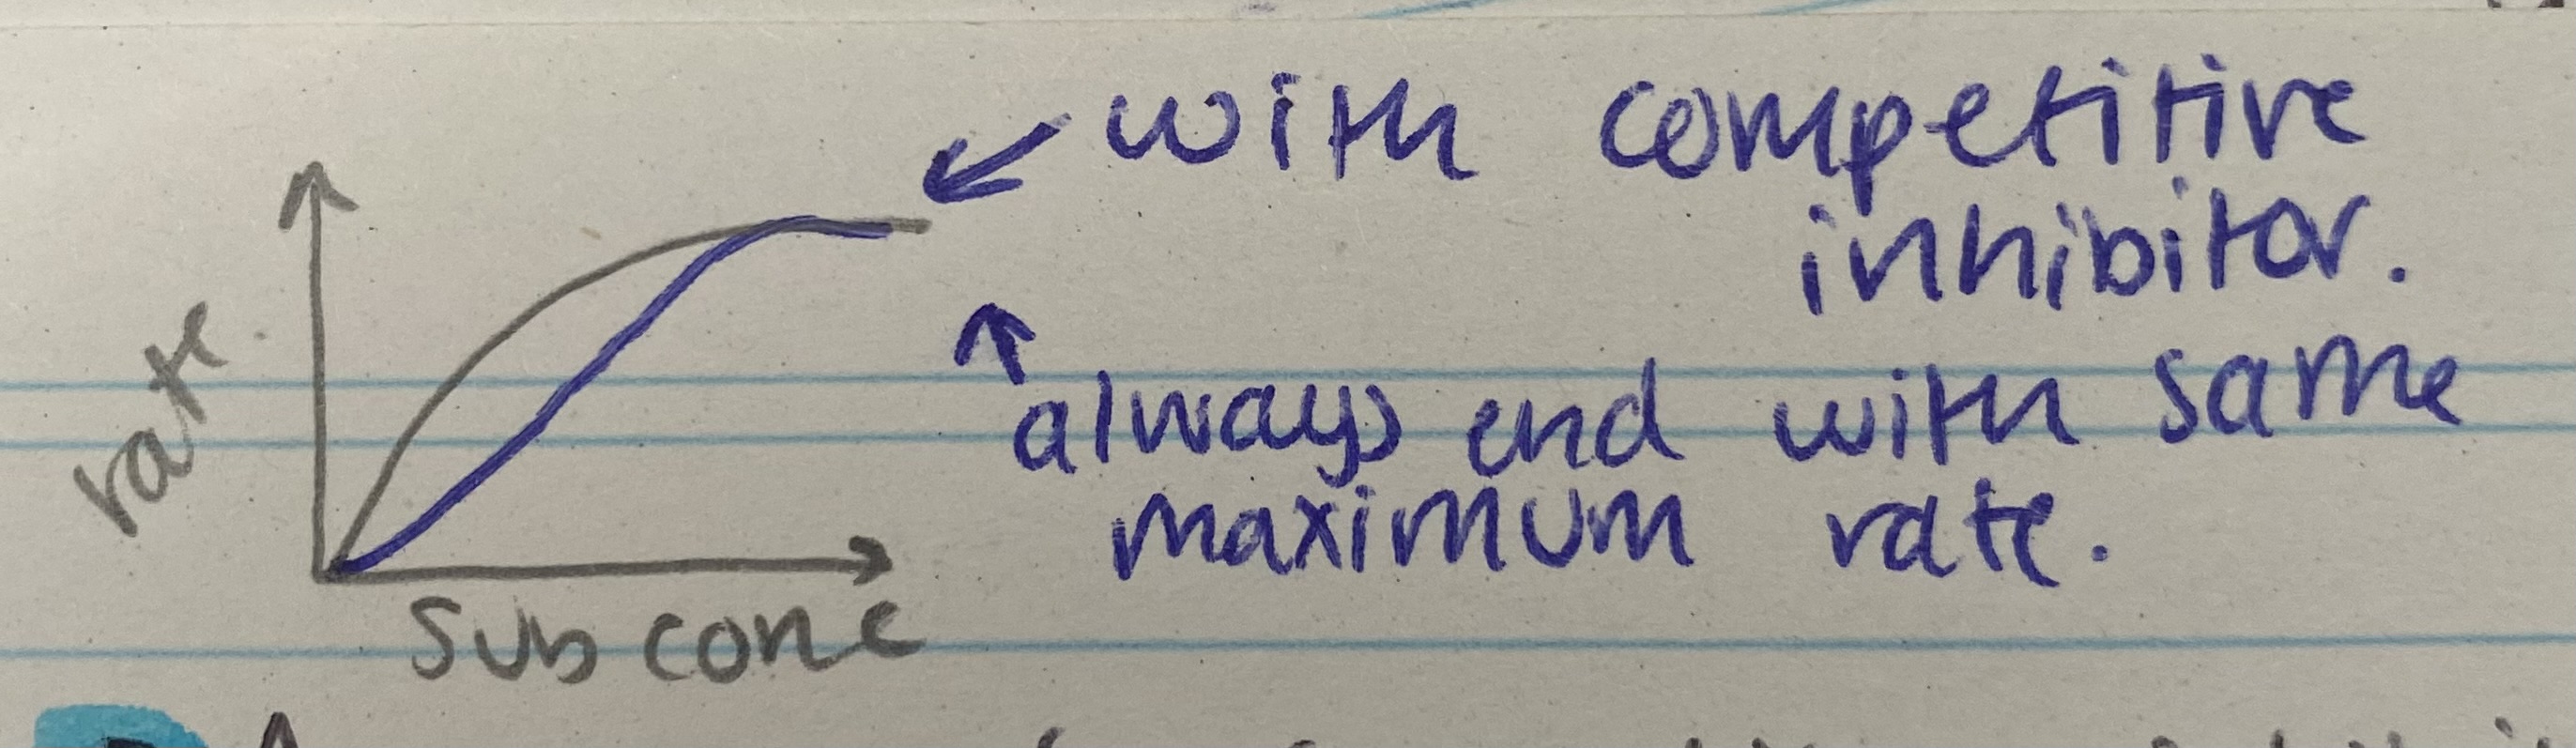 with competitive
inhibitor.
rate.
always end with same
maximum rate.
sub conc